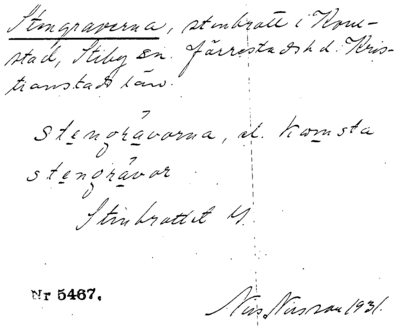 Stengraverna, stenbrott i Kom-
stad, Stiby sn. Järrestads hd. Kris-
tianstads län.
stengravorna, el. komsta
stengravor
Stenbrottet
Nr 5467.
Nils Nilsson 1931.